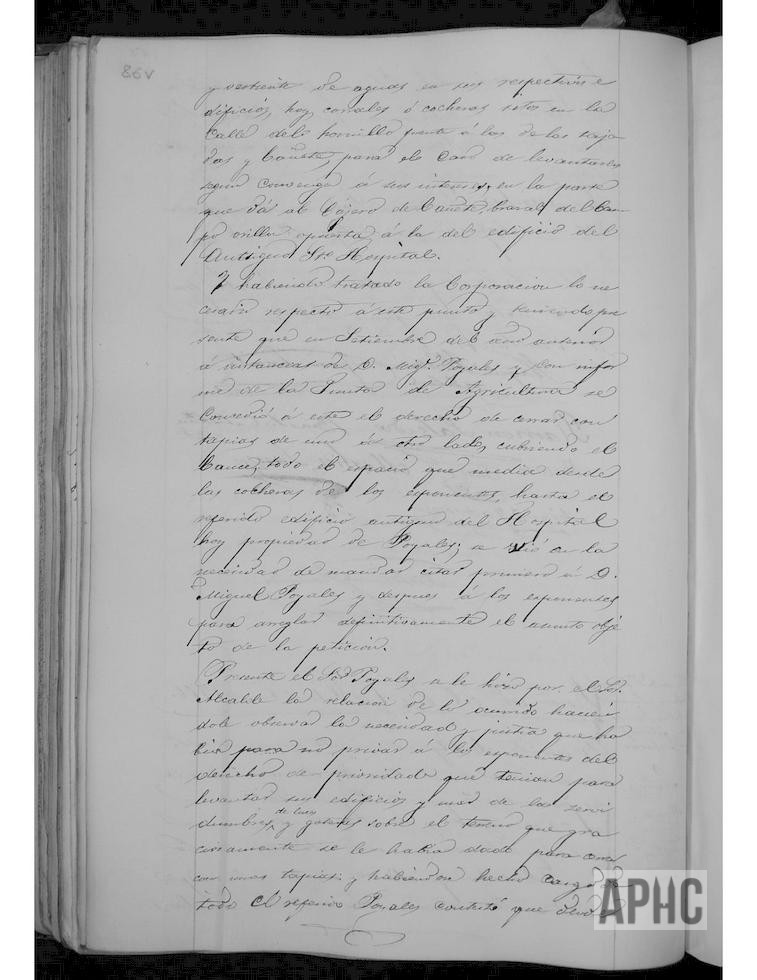 86v
y vertiente de aguas en sus respectivos e
dificios, hoy corrales ó cocheras sitos en la
Calle del hornillo frente á las de las
y Cañete, para el caso de levantarlos
segun convenga á sus intereses, en la parte
que dá al de Cañete, brazal del Cam
po orilla opuesta á la del edificio del
Antiguo Sto Hospital.
Y habiendo tratado la Corporacion lo ne
cesario respecto á este punto y teniendo pre
sente que en Setiembre del año anterior
á instancias de D. Migl. Poyales y con infor
me de la Junta de Agricultura se
concedió á este el derecho de cerrar con
tapias de uno á otro lado, cubriendo el
Cauce, todo el espacio que media desde
las cocheras de los esponentes, hasta el
referido edificio antiguo del Hospital
hoy propiedad de Poyales; se vió en la
necesidad de mandar citar primero á D.
Miguel Poyales y despues á los esponentes
para arreglar definitivamente el asunto obje
to de la peticion.
Presente el Sor Poyales se le hizo por el Sr.
Alcalde la relacion de lo ocurrido hacien
dole observar la necesidad y justicia que ha
bia para no privar á los esponentes del
derecho de prioridad que tenian para
levantar sus edificios y usar de las servi
dumbres de luces y goteras sobre el terreno que gra
ciosamente se le habia dado para cerrar
con unas tapias; y habiendose hecho cargo de
todo el referido Poyales contestó que
APHC